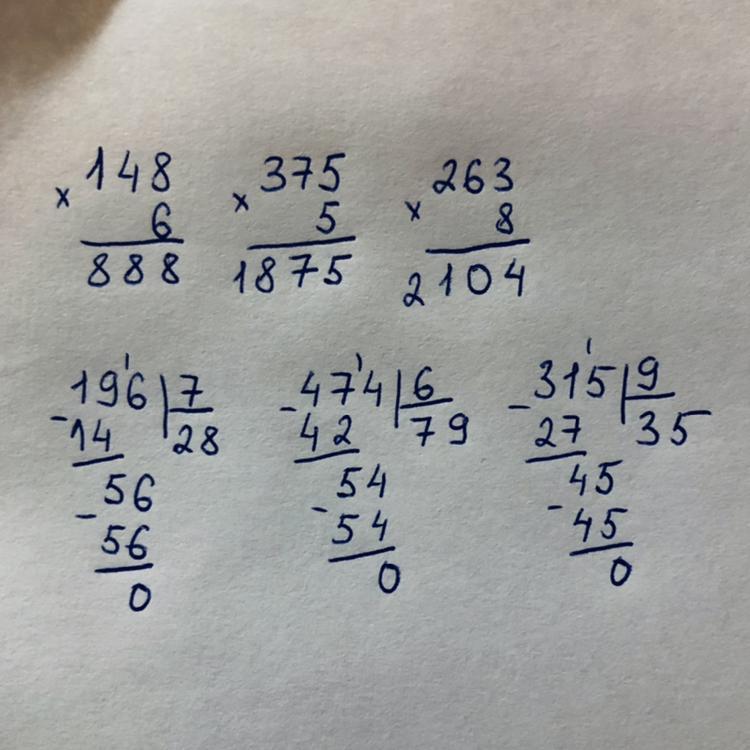 148 375 263
× 6 × 5 × 8
888 1875 2104
196 | 7 474 | 6 315 | 9
- 14 28 - 42 79 - 27 35
56 54 45
- 56 - 54 - 45
0 0 0